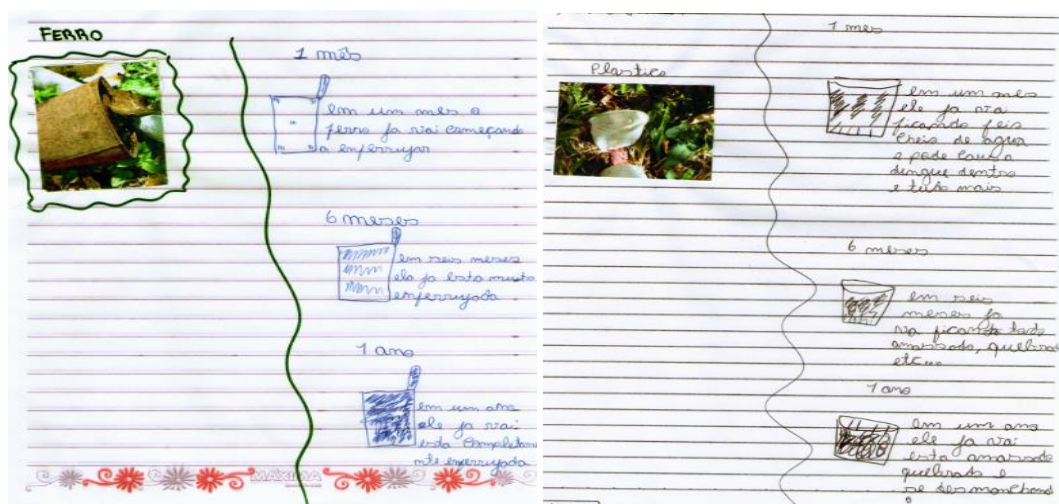 FERRO
1 mês
em um mes o
ferro ja vai começando
a enferrujar
6 meses
em seis meses
ela ja esta muito
enferrujada
1 ano
em um ano
ele ja vai
esta completam
nte enferrujada
MÁXIMA
1 mes
Plastico
em um mes
ele ja vai
ficando feis
cheio de agua
e pode causa
dengue dentro
e tudo mais
6 meses
em seis
meses ja
va ficando todo
amassado, quebrado
1 ano
em um ano
ele ja vai
esta amassado
quebrado e
se desmonchand